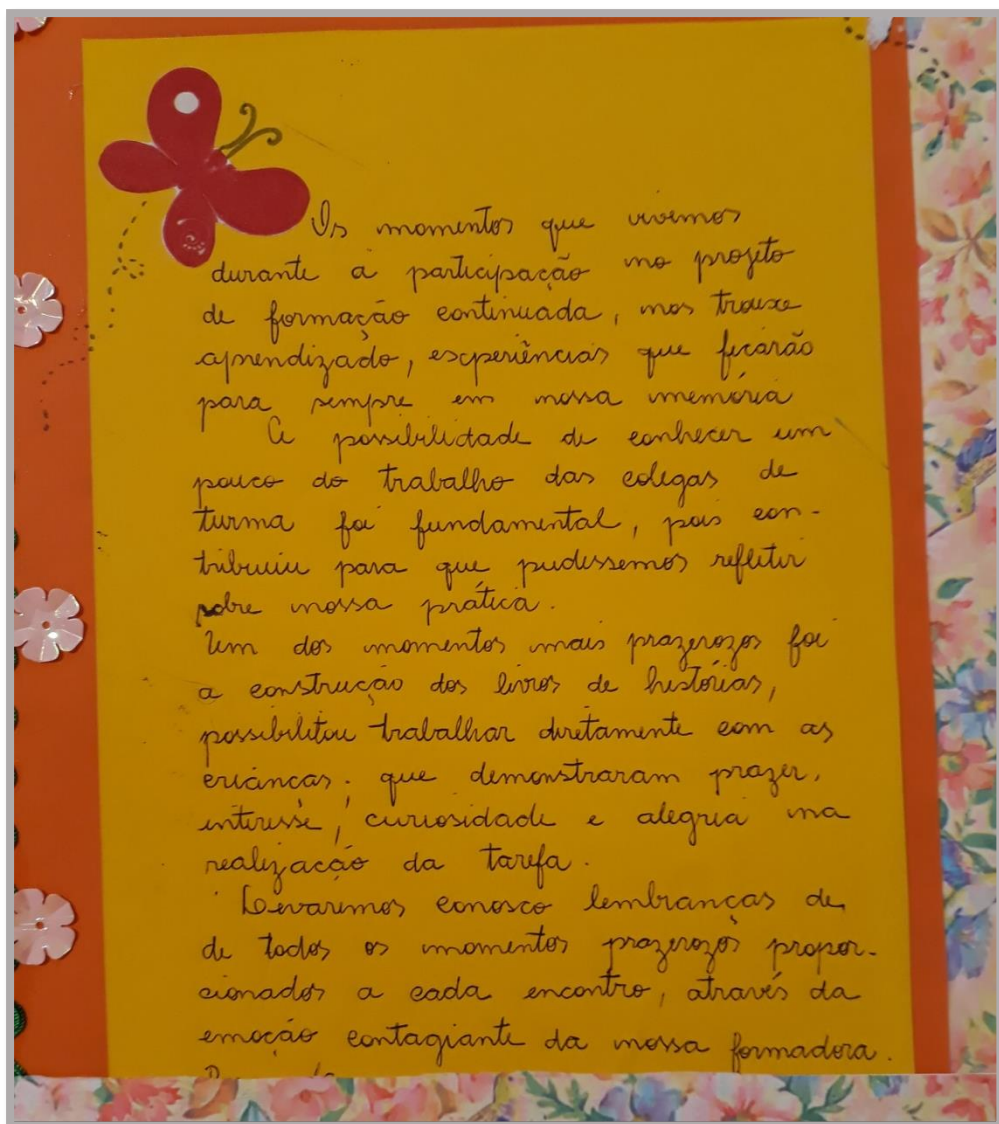 Os momentos que vivemos
durante a participação no projeto
de formação continuada, nos trouxe
aprendizado, experiências que ficarão
para sempre em nossa memória
A possibilidade de conhecer um
pouco do trabalho das colegas de
turma foi fundamental, pois con-
tribuiu para que pudessemos refletir
sobre nossa prática.
Um dos momentos mais prazerozos foi
a construção dos livros de histórias,
possibilitou trabalhar diretamente com as
crianças; que demonstraram prazer,
interesse, curiosidade e alegria na
realização da tarefa.
Levaremos conosco lembranças de
de todos os momentos prazerozos propor-
cionados a cada encontro, através da
emoção contagiante da nossa formadora.